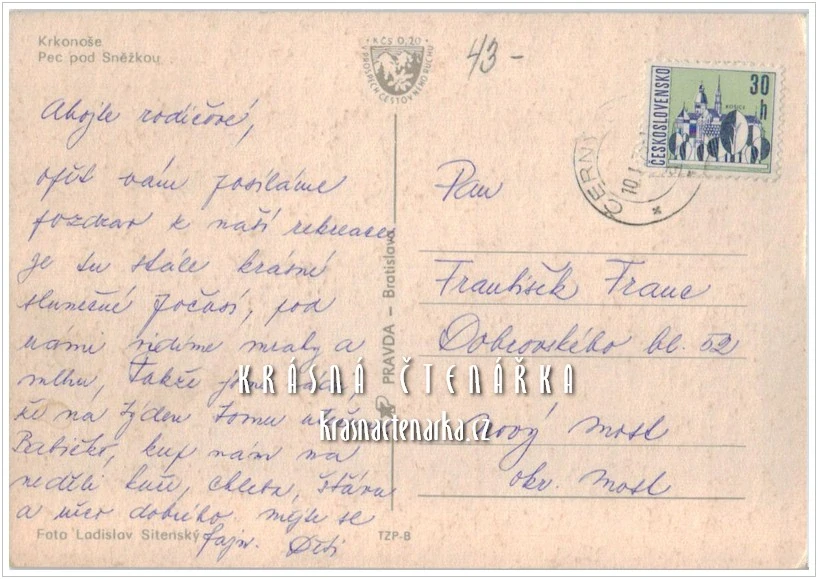 Krkonoše
Pec pod Sněžkou
KČS 0,20
V PROSPĚCH CESTOVNÍHO RUCHU
43-
ČESKOSLOVENSKO
30 h
KOŠICE
ČERN
10.1
Ahojte rodičové,
opět vám posíláme
pozdrav k naší rekreace
je tu stále krásné
slunečné počasí, pod
námi vidíme mraky a
mlhu, takže jsme rádi,
že na týden tomu
Babičko, kup nám na
neděli kuře, chleba, šťávu
a něco dobrého. mějte se
fajn. Děti
Pan
František Franc
Dobrovského bl. 52
Nový Most
okr. Most
PRAVDA – Bratislava
KRÁSNÁ ČTENÁŘKA
krasnactenarka.cz
Foto Ladislav Sitenský
TZP-B